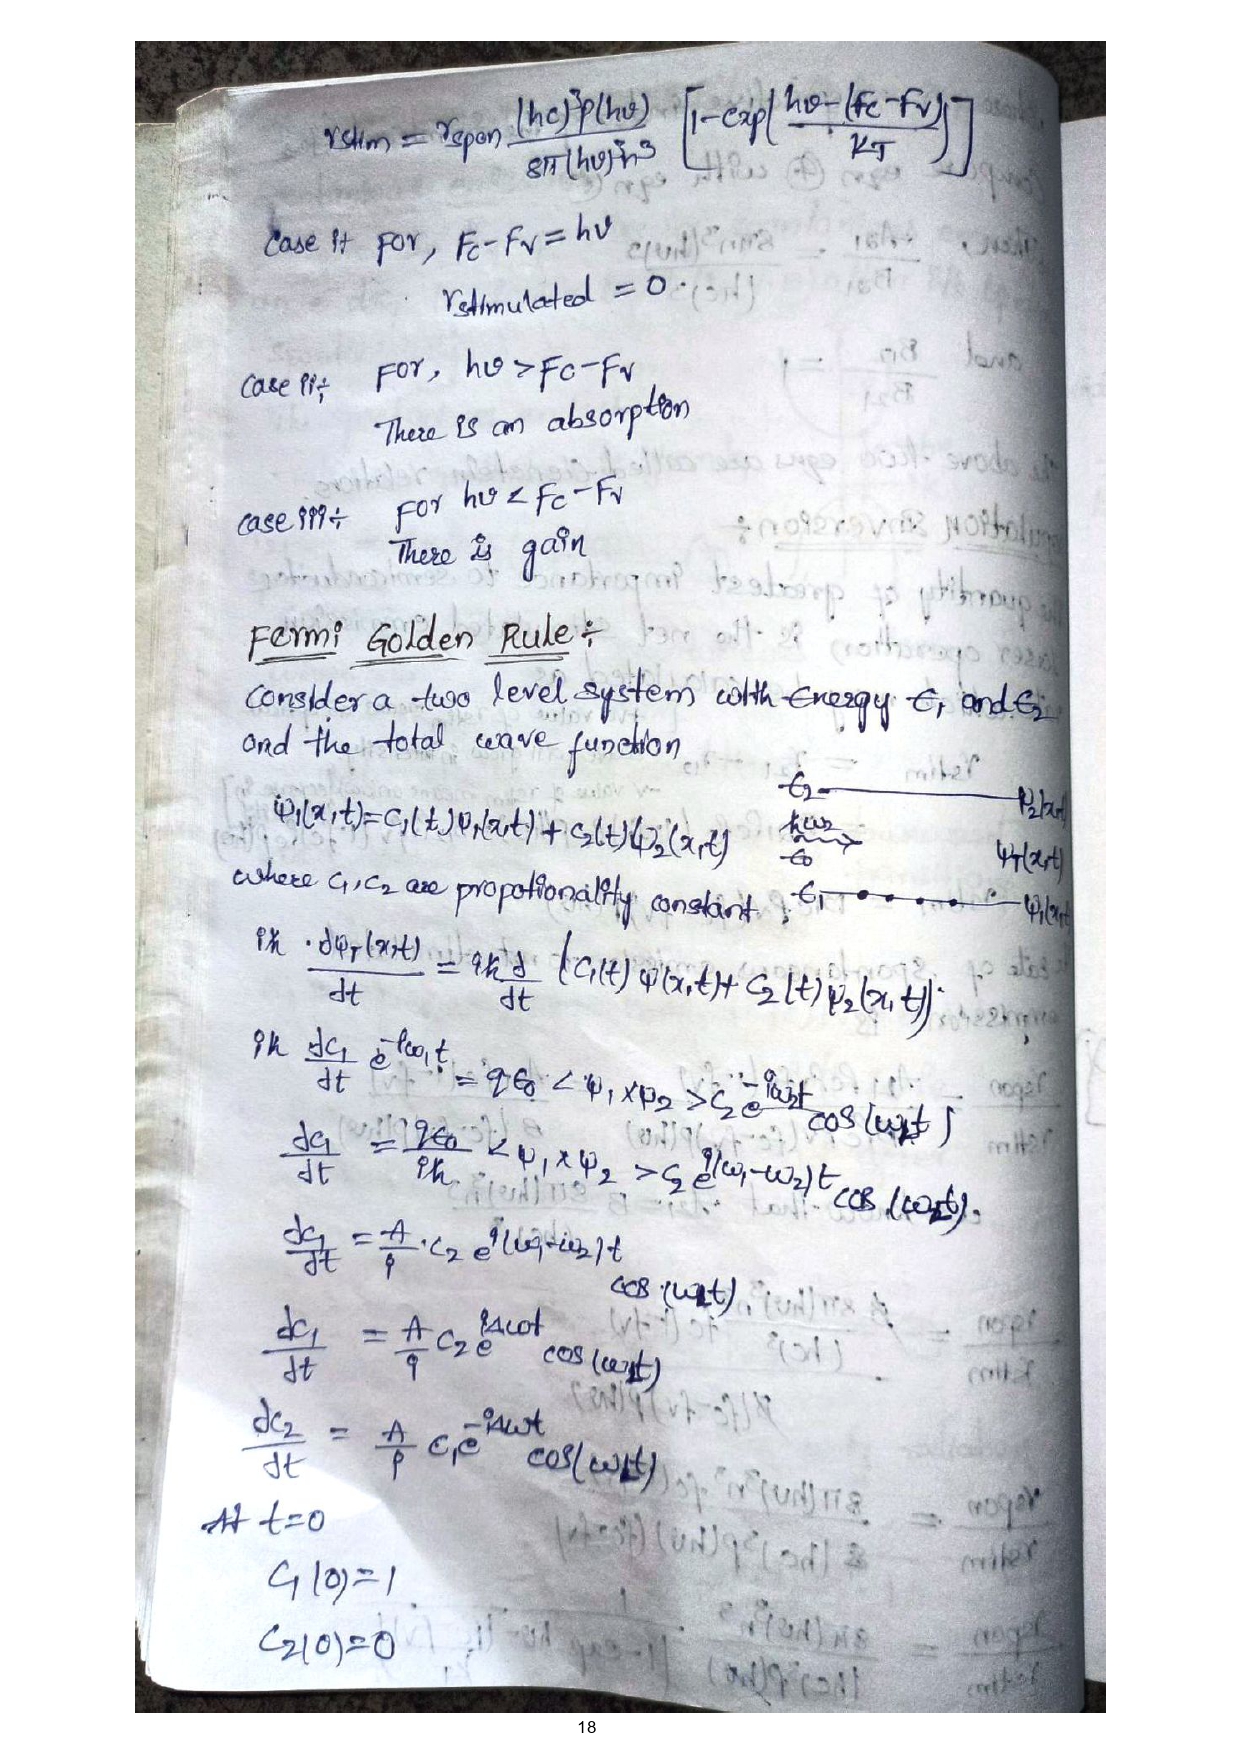 rstim = rspon (hc)³P(hν) / 8π(hν)²n³ [1-exp(hν-(Fc-Fv) / KT)]
Case i÷ For, Fc-Fv = hν
rstimulated = 0.
Case ii÷ For, hν > Fc-Fv
There is an absorption
Case iii÷ For hν < Fc-Fv
There is gain
Fermi Golden Rule÷
Consider a two level system with Energy E1 and E2
and the total wave function
E2 ψ2(x,t)
ψ1(x,t) = C1(t)ψ1(x,t) + C2(t)ψ2(x,t) ħω2
E0 ψT(x,t)
where C1, C2 are propotionality constant. E1 ψ1(x,t
iħ . dψT(x,t) / dt = iħ d/dt (C1(t) ψ(x,t) + C2(t) ψ2(x,t)).
iħ dC1/dt e^-iω1t = qE0 < ψ1 x ψ2 > C2 e^-iω2t cos(ωLt)
dC1/dt = qE0/iħ < ψ1 x ψ2 > C2 e^i(ω1-ω2)t cos(ωLt).
dC1/dt = A/i . C2 e^i(ω1-ω2)t
cos(ωLt)
dC1/dt = A/i C2 e^iΔωt cos(ωLt)
dC2/dt = A/i C1 e^-iΔωt cos(ωLt)
At t=0
C1(0)=1
C2(0)=0
18